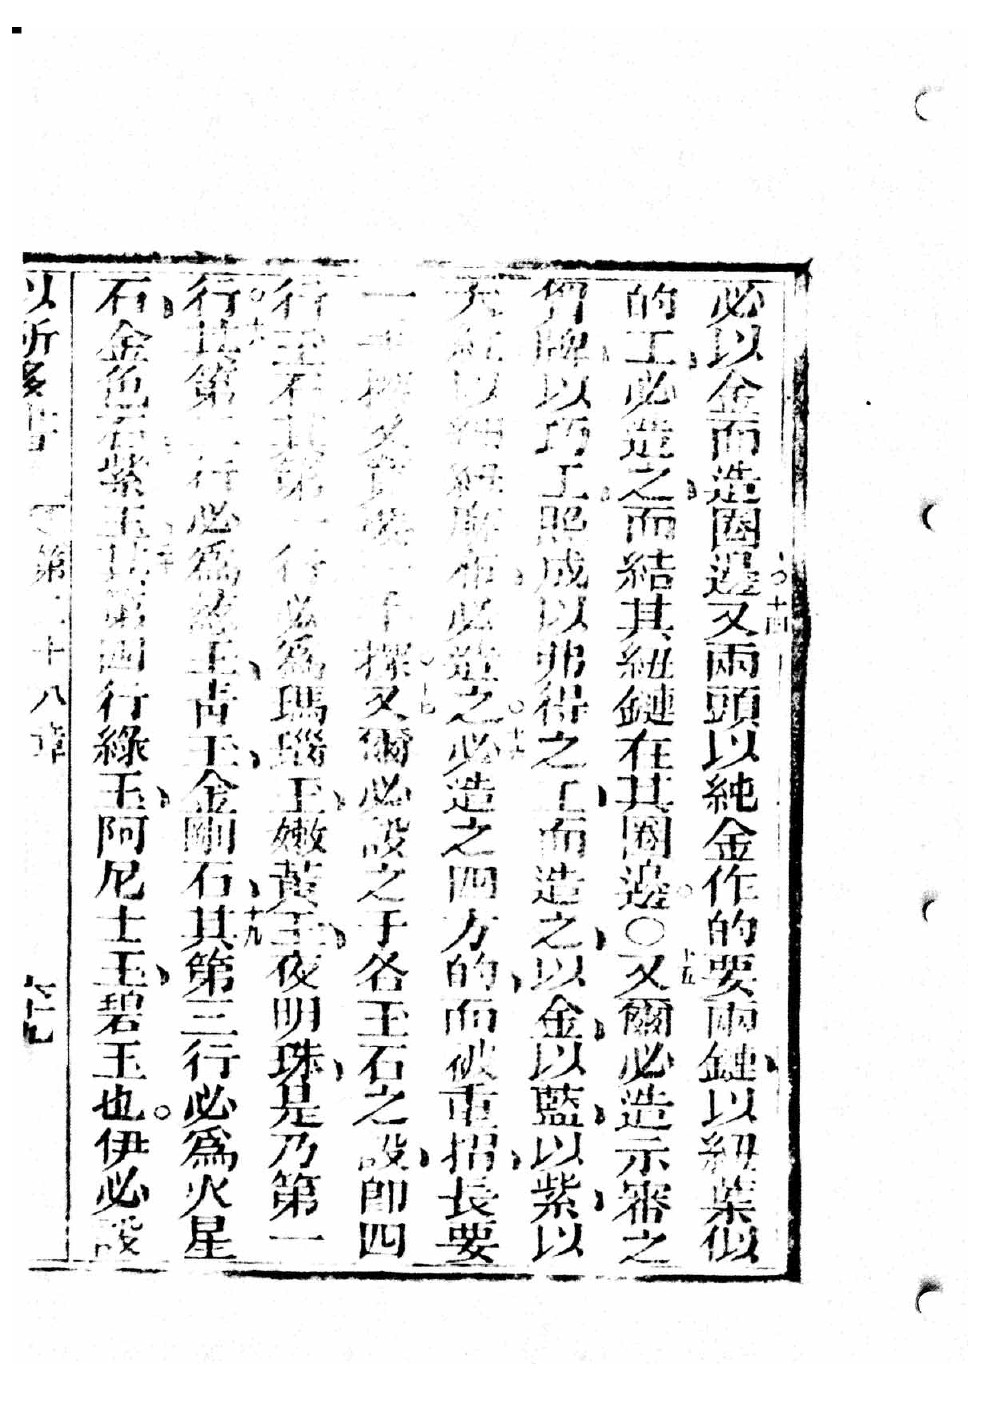 必以金而造圈邊又兩頭以純金作的要兩鏈以紐葉似
的工必造之而結其紐鏈在其圈邊〇又爾必造示審之
牌以巧工照成以弗得之工而造之以金以藍以紫以
以細麻布必造之必造之四方的而被重摺長要
一手擇又爾必設之于各玉石之設卽四
行玉石其第一行必爲瑪瑙玉嫩黃玉夜明珠是乃第一
行其第二行必爲玉青玉金剛石其第三行必爲火星
石金色石紫玉其第四行綠玉阿尼士玉碧玉也。伊必設
以所多書 第二十八章